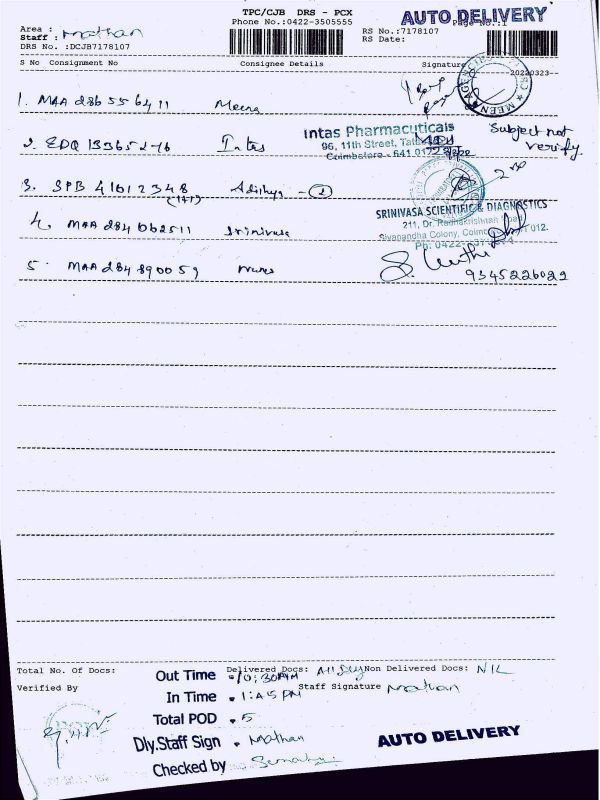 TPC/CJB DRS - PCX
AUTO DELIVERY
Phone No.:0422-3505555
Page No.:1
Area :
Staff : Mathan
RS No.:7178107
DRS No. :DCJB7178107
RS Date:
S No Consignment No Consignee Details Signature
20220323
1. MAA 286556411 Meena
MEEN AGENCIES
2. EDQ 133652716 Intas
Intas Pharmacuticals
96, 11th Street,
Coimbatore - 641 012
Subject not verify.
3. SPB 41612348 Adithya - 2
(141)
4. MAA 284062511 Srinivasa
SRINIVASA SCIENTIFIC & DIAGNOSTICS
211, Dr. Radhakrishnan
Sivanandha Colony, Coimbatore 012.
Ph: 0422-
5. MAA 284890059
9345226029
Total No. Of Docs: Delivered Docs: All Dly Non Delivered Docs: NIL
Verified By
Staff Signature Mathan
Out Time 10:30AM
In Time 1:45 PM
Total POD 5
Dly.Staff Sign Mathan
Checked by
AUTO DELIVERY